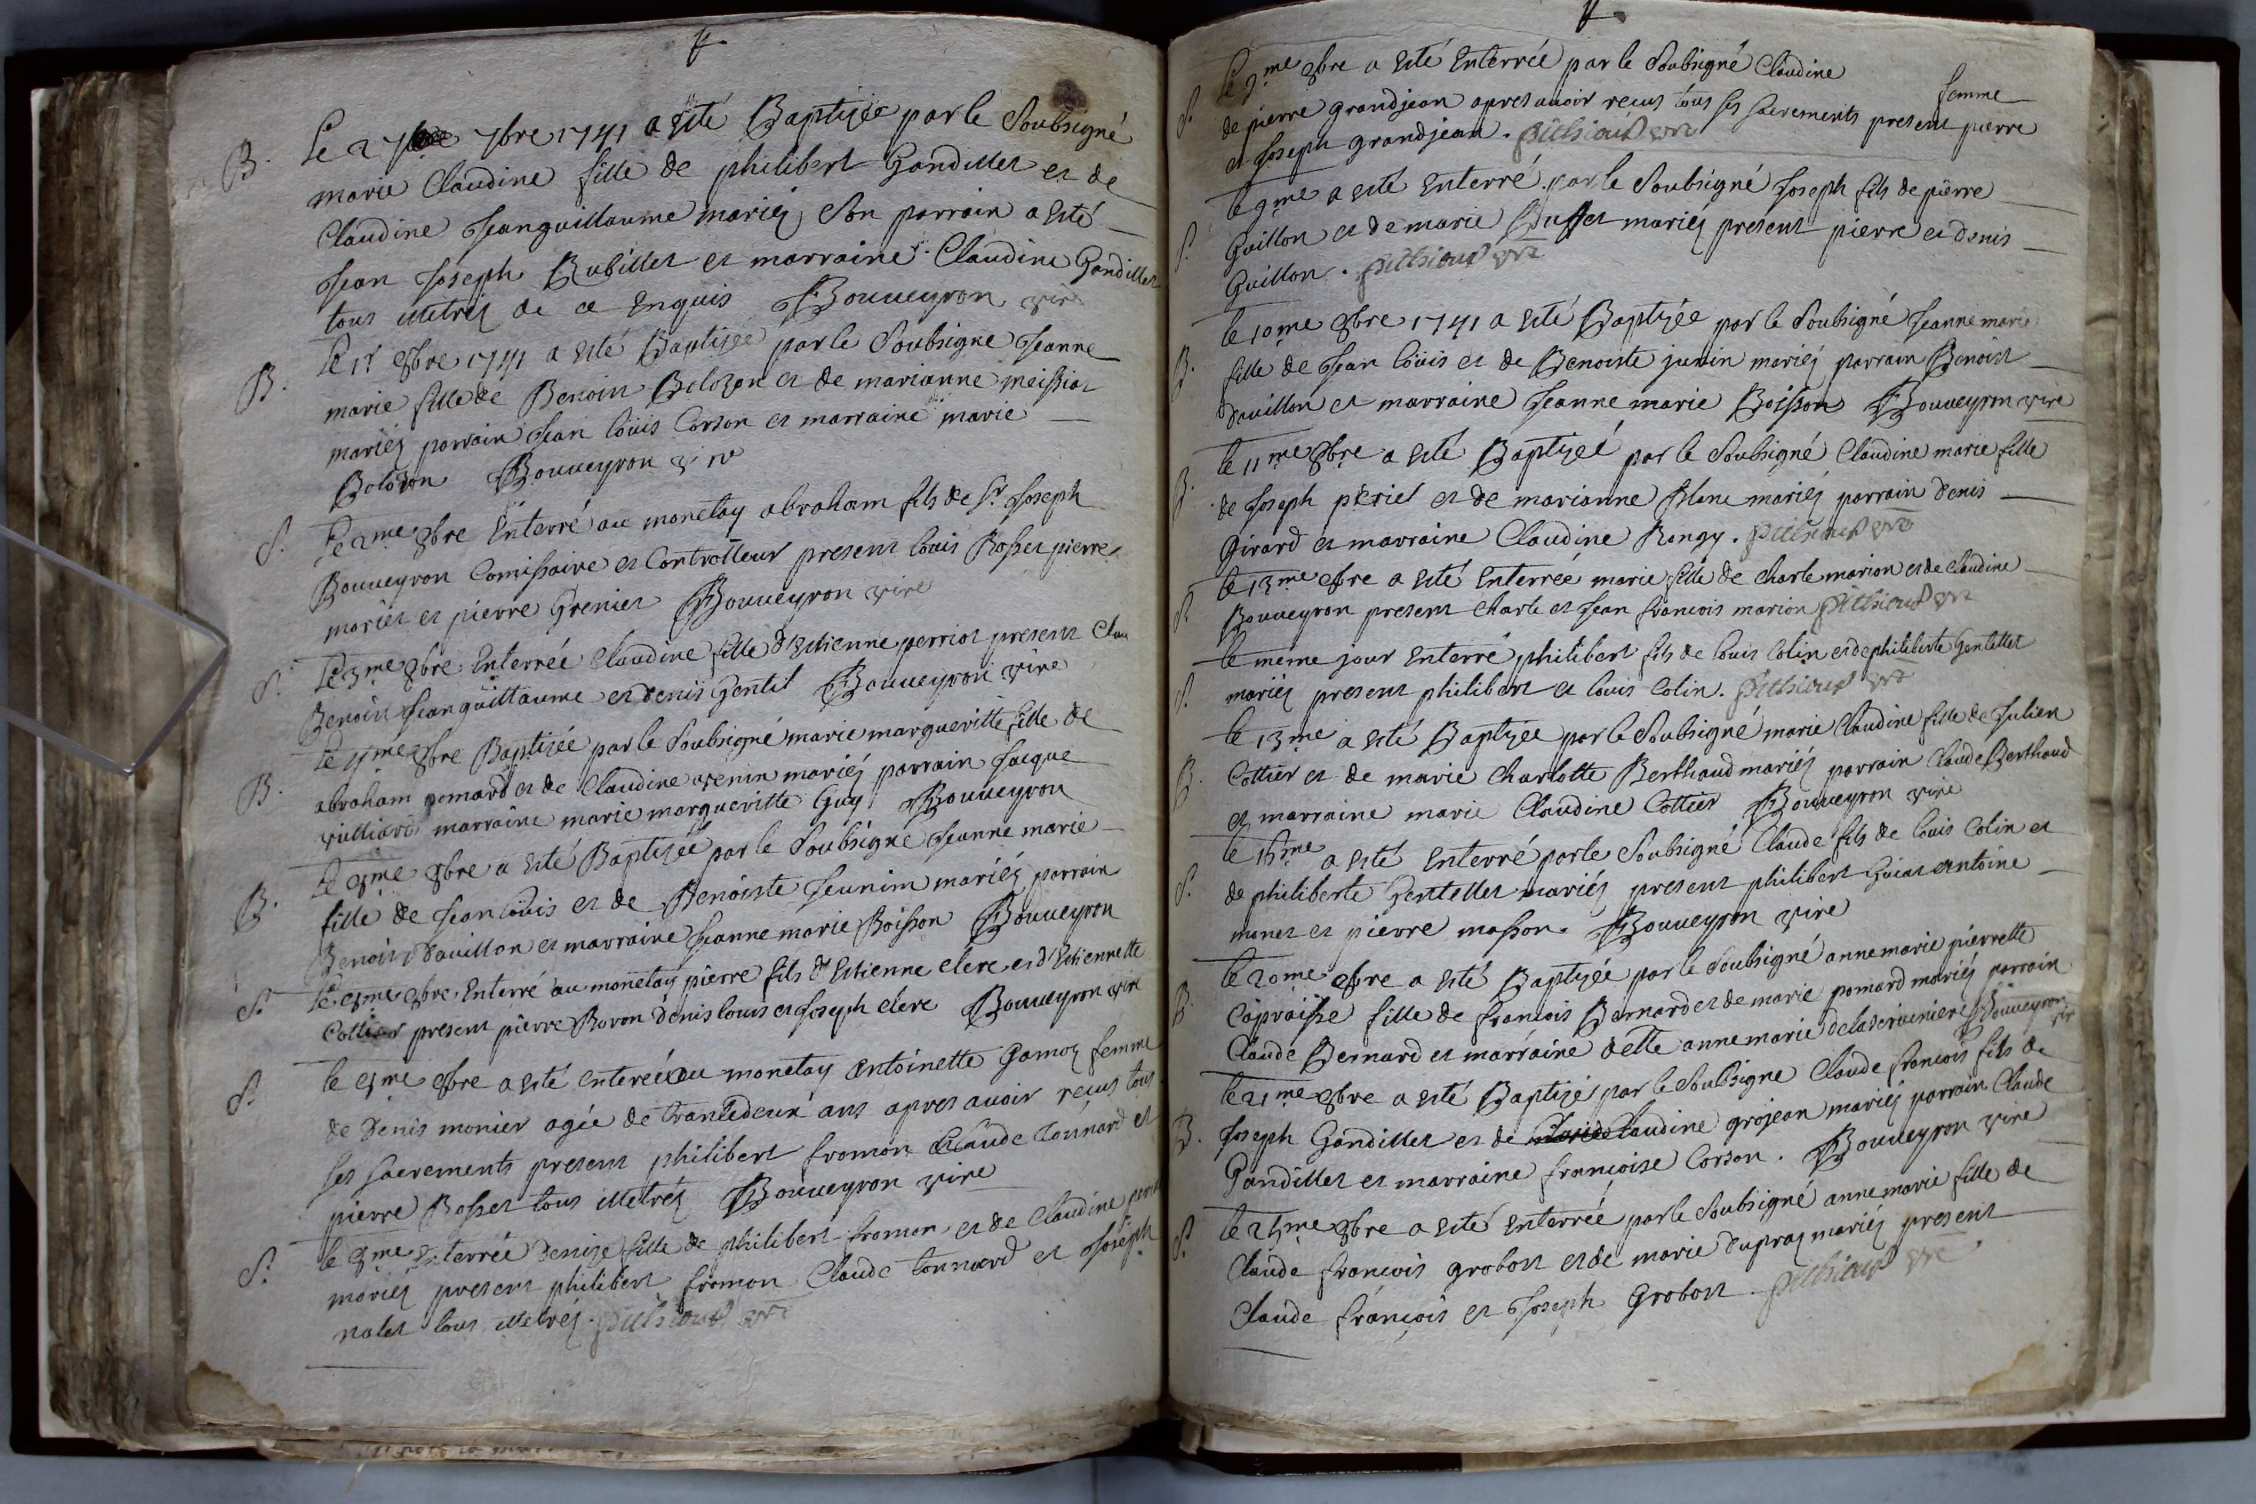 B. Le 27 7bre 1741 a esté Baptizée par le Soubsigné
marie Claudine fille de philibert Gandillet et de
Claudine Jeanguillaume mariéz son parrain a esté
Jean Joseph Bubillet et marraine Claudine Gandillet
tous illetréz de ce enquis Bouueyron vire
B. Le 1r 8bre 1741 a esté Baptizée par le Soubsigne Jeanne
marie fille de Benoin Bolozon et de marianne meissiat
mariéz parrain Jean loüis Corson et marraine marie
Bolozon Bouueyron vire
S. Le 2me 8bre Enterré au monetay abraham fils de Sr Joseph
Bouueyron Comissaire et Controlleur present louis Rosset pierre
mariet et pierre Grenier Bouueyron vire
S. Le 3me 8bre Enterrée Claudine fille d'Estienne perriot present Clau
Benoin Jeanguillaume et denis Gentil Bouueyron vire
B. Le 4me 8bre Baptizée par le Soubsigné marie margueritte fille de
abraham pomard et de Claudine venin mariéz parrain Jacque
vulliard marraine marie margueritte Guy Bouueyron
B. Le 8bre a esté Baptizée par le Soubsigné Jeanne marie
fille de Jean loüis et de Benoiste Jeunim mariéz parrain
Benoin Dauillon et marraine Jeanne marie Boisson Bouueyron
S. Le 8bre Enterré au monetay pierre fils d'Estienne clere et d'Estiennette
Cottier present pierre Bovon denis louis et Joseph clere Bouueyron vire
S. le 8bre a esté enterée au monetay antoinette Gamoz femme
de Denis monier agée de trantedeux ans apres auoir reçus tous
ses sacrements present philibert fromon Claude tonnard et
pierre Rosset tous illetréz Bouueyron vire
S. le 8me Enterrée Denize fille de philibert fromon et de Claudine
mariéz present philibert fromon Claude tonnard et Joseph
nalet tous illetréz
S. Le 9me 8bre a esté Enterrée par le Soubsigné Claudine femme
de pierre grandjean apres auoir recus tous ses sacrements present pierre
et Joseph grandjean.
S. le 9me a esté Enterré par le Soubsigné Joseph fils de pierre
Guillon et de marie Buffet mariéz present pierre et denis
Guillon.
B. le 10me 8bre 1741 a esté Baptizée par le Soubsigné Jeanne marie
fille de Jean loüis et de Benoiste junin mariéz parrain Benoist
Dauillon et marraine Jeanne marie Boisson Bouueyron vire
B. le 11me 8bre a esté Baptizeé par le Soubsigné Claudine marie fille
de Joseph periel et de marianne Blanc mariéz parrain denis
Girard et marraine Claudine Rongy.
S. le 13me 8bre a esté Enterrée marie fille de charle marion et de Claudine
Bouueyron present charle et Jean francois marion
S. le meme jour Enterré philibert fils de louis Colin et de philiberte Gentellet
mariéz present philibert et louis Colin.
B. le 13me a esté Baptizée par le Soubsigné marie Claudine fille de Julien
Cottier et de marie Charlotte Berthaud mariéz parrain Claude Berthaud
et marraine marie Claudine Cottier Bouueyron vire
S. le a esté Enterré par le Soubsigné Claude fils de louis Colin et
de philiberte Gentellet mariéz present philibert Guiat antoine
monet et pierre masson. Bouueyron vire
B. le 20me 8bre a esté Baptizée par le Soubsigné anne marie pierrette
Capraisse fille de francois Bernard et de marie pomard mariéz parrain
Claude Bernard et marraine delle anne marie Bouueyron
vire
B. le 21me 8bre a esté Baptizé par le Soubsigne Claude francois fils de
Joseph Gandillet et de Claudine grosjean mariéz parrain Claude
Gandillet et marraine françoise Corson. Bouueyron vire
S. le 8bre a esté Enterrée par le Soubsigné anne marie fille de
Claude francois grobon et de marie dupraz mariéz present
Claude francois et Joseph Grobon